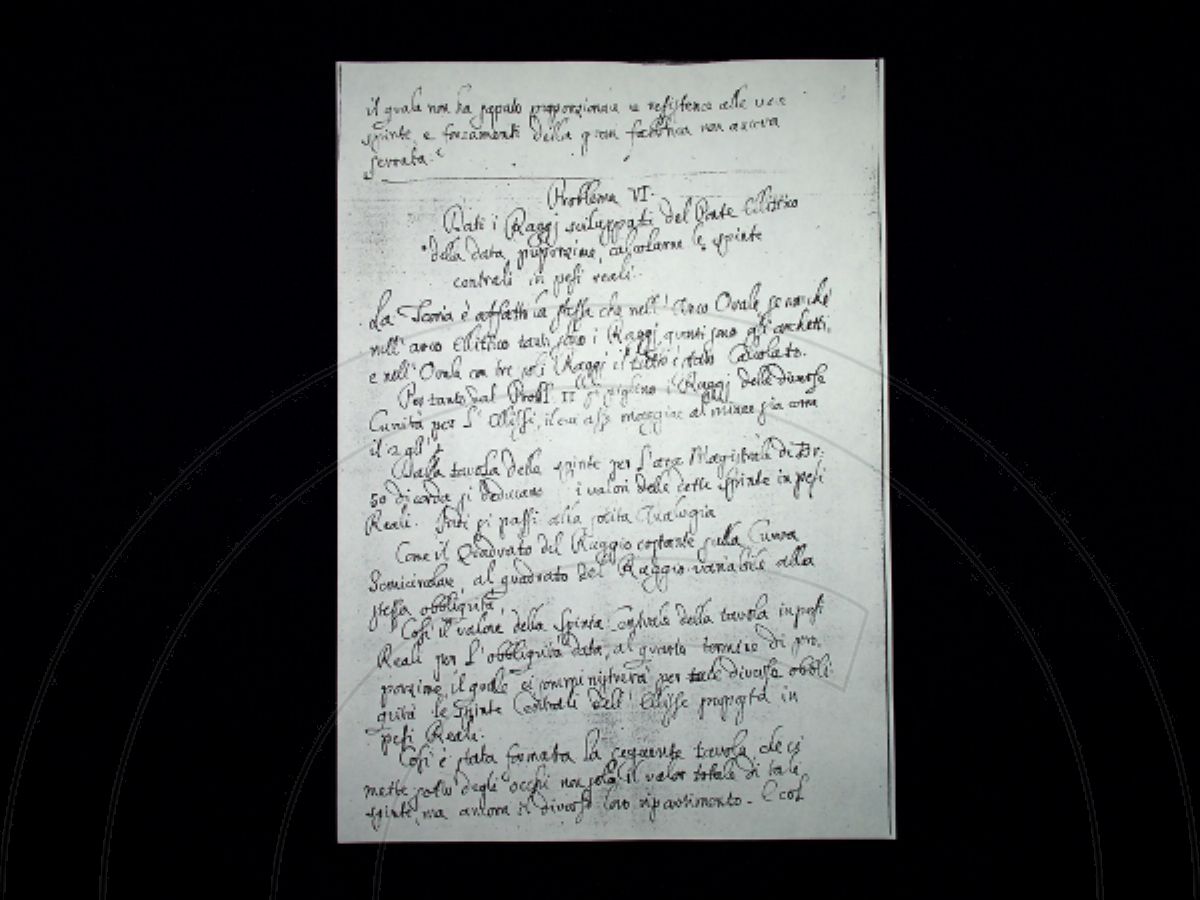 il quale non ha saputo proporzionare le resistenze alle vere
spinte, e forzamenti della gran fabbrica non ancora
serrata.
Problema VI.
Dati i Raggj sviluppati del Ponte Ellittico
della data proporzione, calcolarne le spinte
centrali in pesi reali.
La Teoria è affatto la stessa che nell' Arco Ovale se non che
nell' arco Ellittico tanti sono i Raggj quanti sono gli archetti,
e nell' Ovale con tre soli Raggj il tutto è stato Calcolato.
Per tanto dal Probl. II si piglino i Raggj delle diverse
Curvità per L' Ellissi, il cui asse maggiore al minore sia come
il 2 all'
Dalla tavola delle spinte per l'arco Magistrale di Br:
50 di corda si deducano i valori delle dette spinte in pesi
Reali. Indi si passi alla solita Analogia
Come il Quadrato del Raggio costante sulla Curva
Semicircolare, al quadrato del Raggio variabile alla
stessa obbliquità,
Così il valore della Spinta Centrale della tavola in pesi
Reali per L' obbliquità data, al quarto termine di pro-
porzione, il quale ci somministrerà per tale diverse obbli-
quità le spinte Centrali dell' Ellisse proposta in
pesi Reali.
Così è stata formata la seguente tavola che ci
mette sotto degli occhi non solo il valor totale di tale
spinte, ma ancora il diverso loro ripartimento. E così